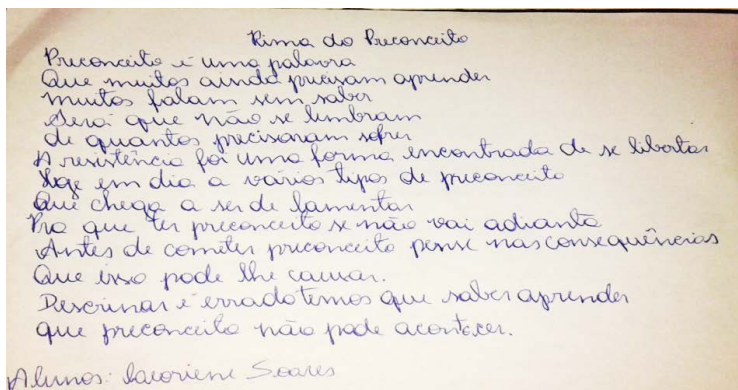 Rima do Preconceito
Preconceito é uma palavra
Que muitos ainda precisam aprender
muitos falam sem saber
Será que não se lembram
de quantos precisaram sofrer
A resistência foi uma forma encontrada de se libertar
Hoje em dia a varios tipos de preconceito
Que chega a ser de lamentar
Pra que ter preconceito se não vai adianta
Antes de cometer preconceito pense nas consequências
Que isso pode lhe causar.
Descrinar é errado temos que saber aprender
que preconceito não pode acontecer.
Alunos: Soares